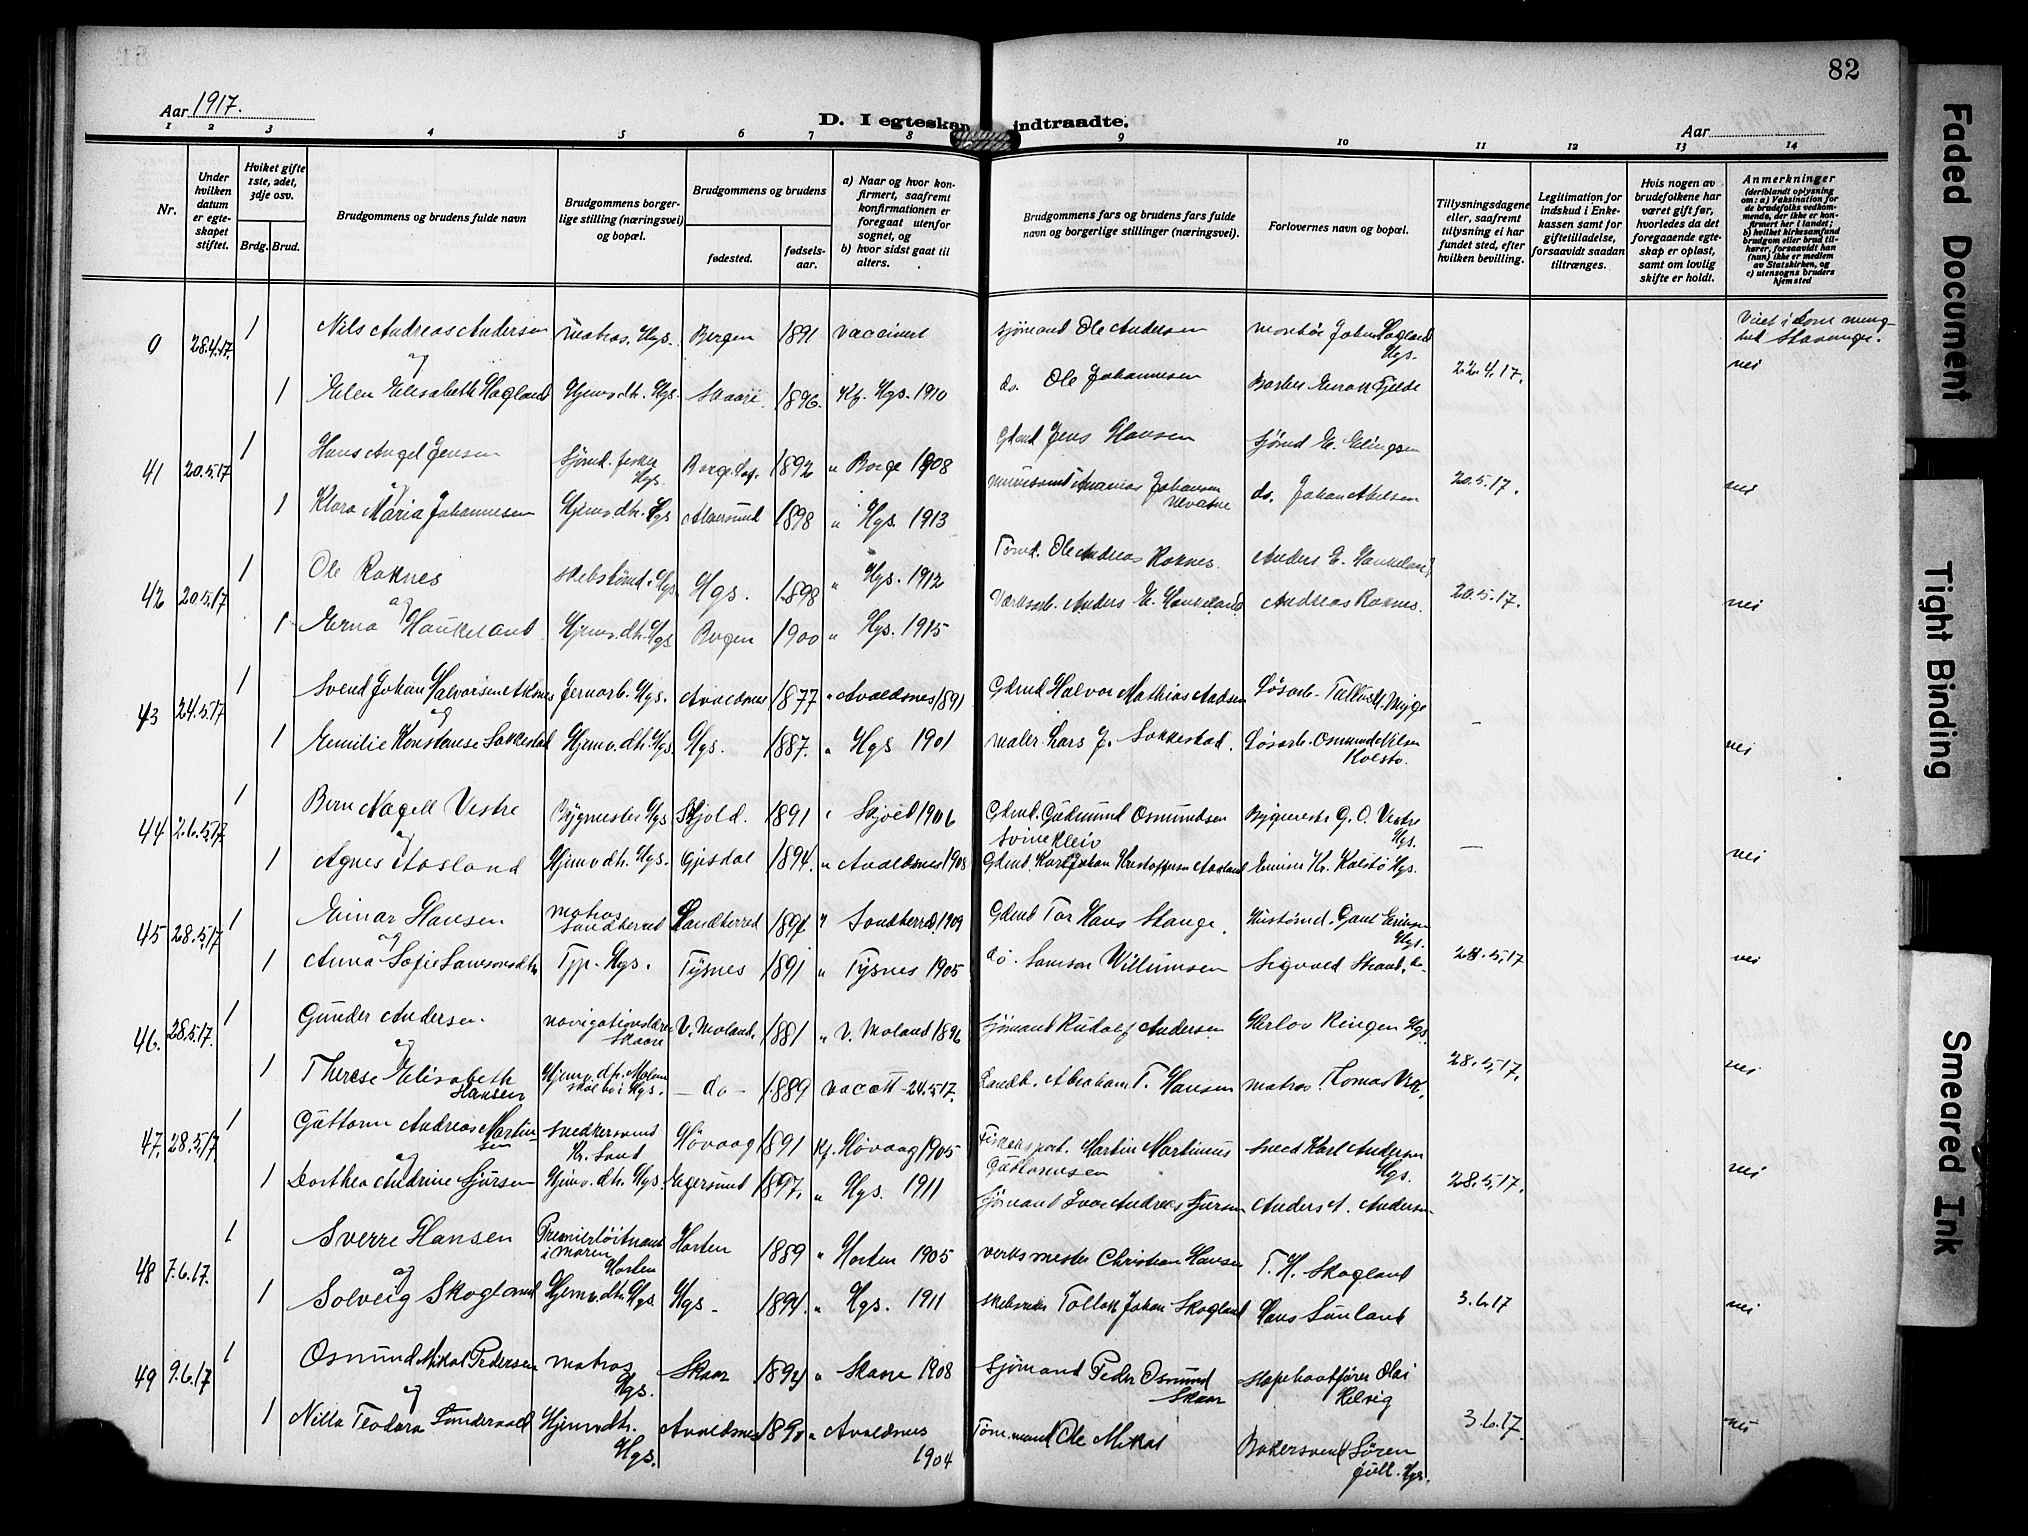 82
Aar 1917.
D. I egteskap indtraadte.
Aar
1 2 3 4 5 6 7 8 9 10 11 12 13 14
Nr.
Under hvilken datum er egteskapet stiftet.
Hviket gifte 1ste, 2det, 3dje osv.
Brdg. Brud.
Brudgommens og brudens fulde navn
Brudgommens borgerlige stilling (næringsvei) og bopæl.
Brudgommens og brudens
fødested.
fødselsaar.
a) Naar og hvor konfirmert, saafremt konfirmationen er foregaat utenfor sognet, og
b) hvor sidst gaat til alters.
Brudgommens fars og brudens fars fulde navn og borgerlige stillinger (næringsvei).
Forlovernes navn og bopæl.
Tillysningsdagene eller, saafremt tillysning ei har fundet sted, efter hvilken bevilling.
Legitimation for indskud i Enkekassen samt for giftetilladelse, forsaavidt saadan tiltrænges.
Hvis nogen av brudefolkene har været gift før, hvorledes da det foregaaende egteskap er opløst, samt om lovlig skifte er holdt.
Anmerkninger
(deriblandt oplysning om: a) Vaksination for de brudefolks vedkommende, der ikke er konfirmert her i landet;
b) hvilket kirkesamfund brudgom eller brud tilhører, forsaavidt han (hun) ikke er medlem av Statskirken, og
c) utensogns bruders hjemsted
0 28.4.17. 1 Nils Andreas Andersen matros. Hgs. Bergen 1891 vaccinert sjömand Ole Andersen montör Johan Hagland Hgs. Viet i Dome menighet Stavanger.
og 22.4.17. nei
1 Elen Elisabeth Hagland Hjemv. dtr. Hgs. Skaare 1896. Kf. Hgs. 1910 do. Ole Johannesen Barber Enok Fjelde
41 20.5.17 1 Hans Angel Jensen Sjömd. fisker Hgs. Borge Lof. 1892 " Borge 1908 Gdmd Jens Hansen Sjömd E. Elingsen
og 20.5.17. nei
1 Klara Maria Johannesen Hjemv. dtr. Hgs Alversund 1898 " Hgs. 1913 Johansen do. Johan Abelsen
42 20.5.17 1 Ole Roknes Hgs Hgs. 1898 " Hgs. 1912 Tömd. Ole Andreas Roknes. Anders E. Haukeland
og 20.5.17. nei
1 Erna Haukeland Hjemv. dtr. Hgs Bergen 1900 " Hgs. 1915 Værksarb. Anders E. Haukeland Andreas Roknes.
43 24.5.17 1 Svend Johan Halvorsen Aksnes Jernarb. Hgs. Avaldsnes 1877 " Avaldsnes 1891 Gdmd Halvor Mathias Aadsen Lösarb. Tallos d. Mygge
og — nei
1 Emilie Konstanse Sakkestad Hjemv. dtr. Hgs Hgs. 1887. " Hgs 1901 maler Lars J. Sakkestad. Lösarb. Osmund Nilsen Kolstö.
44 26.5.17 1 Bern Nagell Vestre Bygmester Hgs Skjold. 1891 " Skjold 1906 Gdmd. Gudmund Osmundsen Svinekleiv Bygmester G. O. Vestre Hgs.
og — nei
1 Agnes Aasland Hjemv. dtr. Hgs. Gjesdal 1894. " Avaldsnes 1908 Gdmd. Karl Johan Kristoffersen Aasland Kr. Kolstö Hgs.
45 28.5.17 1 Einar Hansen matros Sandherred Sandherred 1894 " Sandherred 1909 Gdmd Tor Hans Stange. Gant Eriksen Hgs.
og 28.5.17 nei
1 Anna Sofie Samsonsdtr Tjp. Hgs. Tysnes 1891 " Tysnes 1905 do. Samson Willumsen Sigvald Strand, do
46. 28.5.17. 1 Gunder Andersen. navigationslærer Skaare V. Moland. 1881 " V. Moland 1896 Sjömand Rudolf Andersen Herlov Ringen Hgs
og 28.5.17. nei
1 Therese Elisabeth Hansen Hjemv. dtr. Hgs. — do — 1889 vacatt. 24.5.17. Landh. Abraham T. Hansen matros Thomas Vik.
47. 28.5.17 1 Guttorm Andreas Martinsen snedkersvend Kr. Sand Hövaag 1891 Kf. Hövaag 1905 Martin Martinius Guttormsen Sned Karl Andersen Hgs.
og 28.5.17. nei
1 Dorthea Andrine Sjursen Hjemv. dtr. Hgs. Egersund 1897. " Hgs. 1911 Sjömand Ivar Andreas Sjursen Anders A. Andersen
48 7.6.17. 1 Sverre Hansen Premierlöitnant i marin Horten Horten 1889 " Horten 1905 verksmester Christian Hansen T. H. Skogland
og 3.6.17 nei
1 Solveig Skogland Hjemv. dtr. Hgs Hgs. 1894. " Hgs. 1911 Skibsreder Tollak Johan Skogland Hans Sunland
49 9.6.17 1 Osmund Mikal Pedersen matros Hgs. Skaar 1894 " Skaare 1908 Sjömand Peder Osmund Skaar slæpebaatförer Olai Helvig
og 3.6.17. nei
1 Nilla Teodora Sundervold Hjemv. dtr. Hgs. Avaldsnes 1890 " Avaldsnes 1904 Töm.mand Ole Mikal Bakersvend Sören Juell. Hgs.
Faded Document
Tight Binding
Smeared Ink